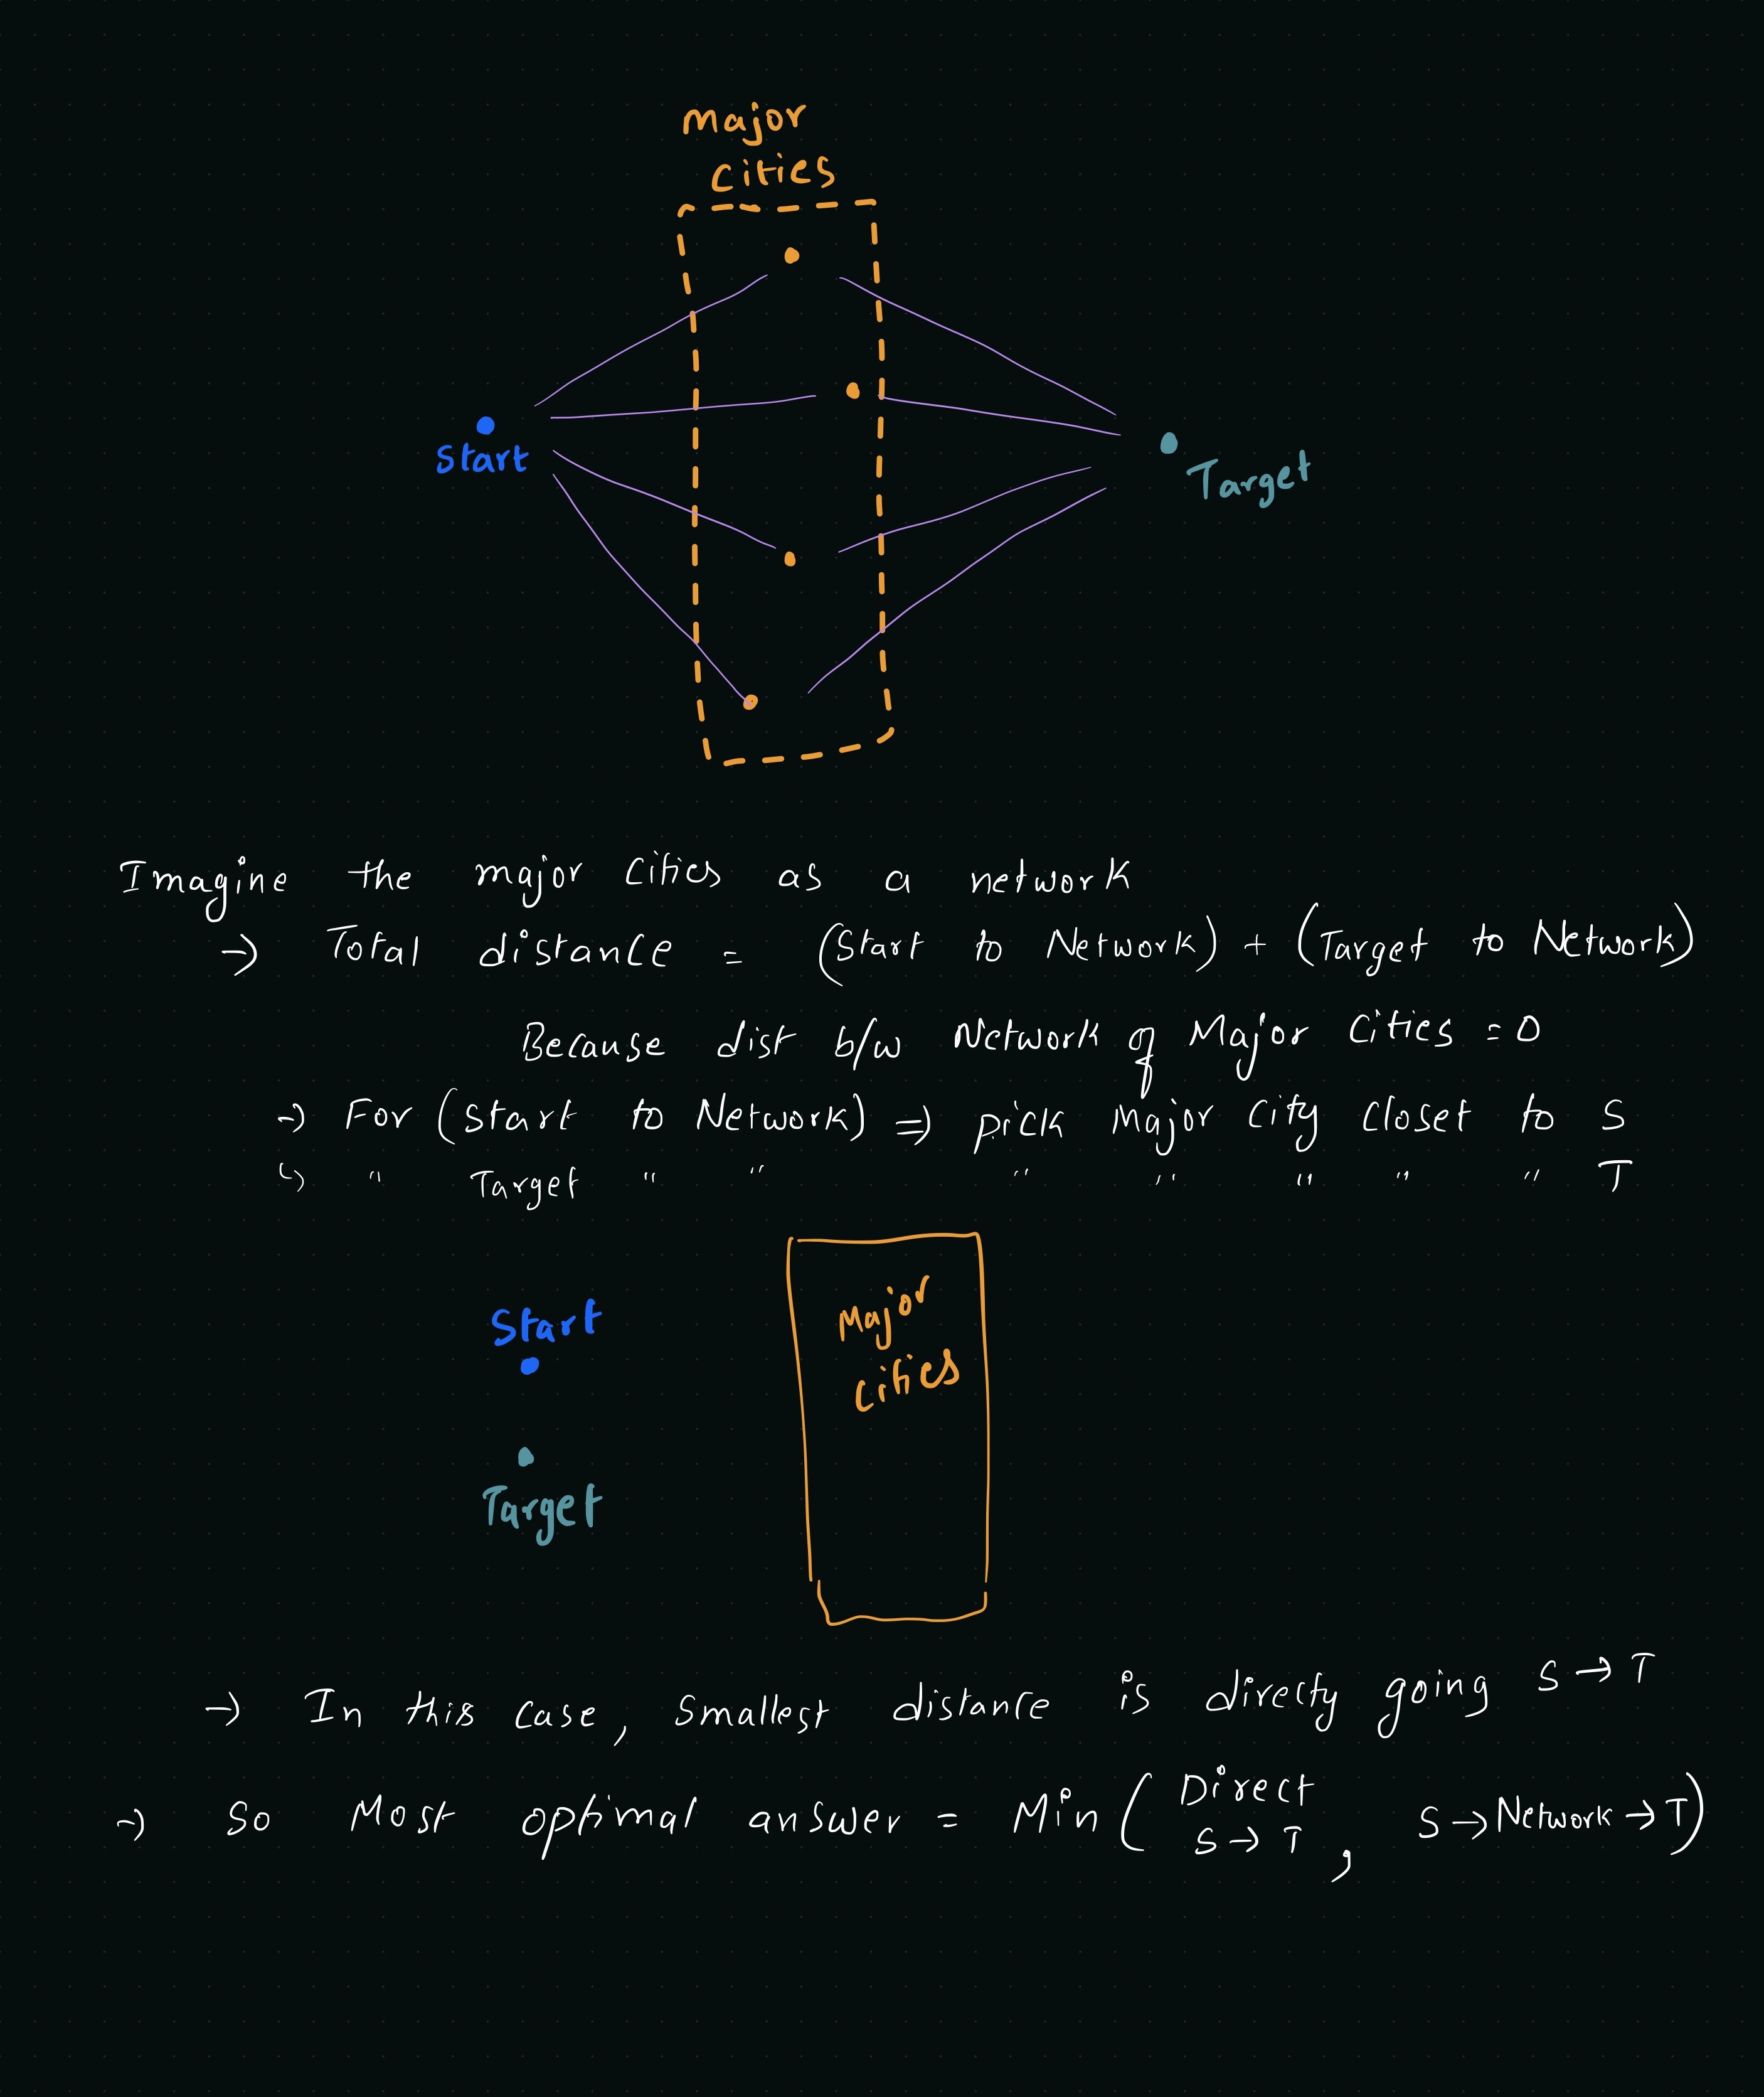 Major
Cities
Start
Target
Imagine the major cities as a network
→ Total distance = (Start to Network) + (Target to Network)
Because dist b/w Network of Major Cities = 0
→ For (Start to Network) ⇒ pick Major City closet to S
↳ " Target " " " " " " " T
Start
Major
Cities
Target
→ In this case, smallest distance is directy going S → T
→ So Most optimal answer = Min ( Direct S → T , S → Network → T )